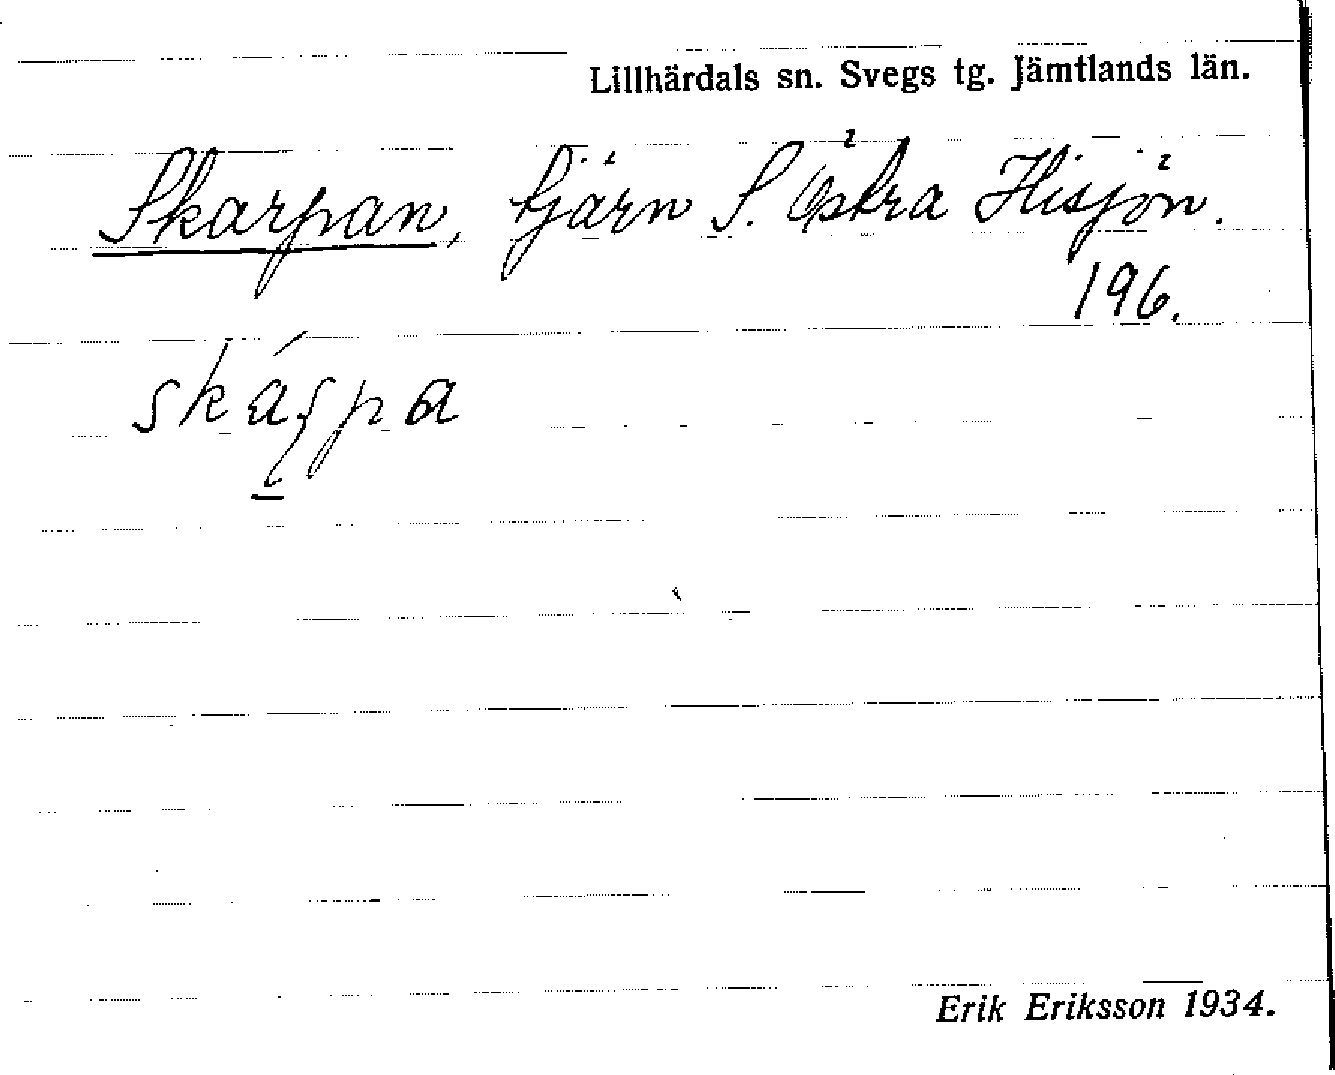 Lillhärdals sn. Svegs tg. Jämtlands län.
Skarpan, tjärn S. Östra Hisjön.
196.
skáṣpa
Erik Eriksson 1934.